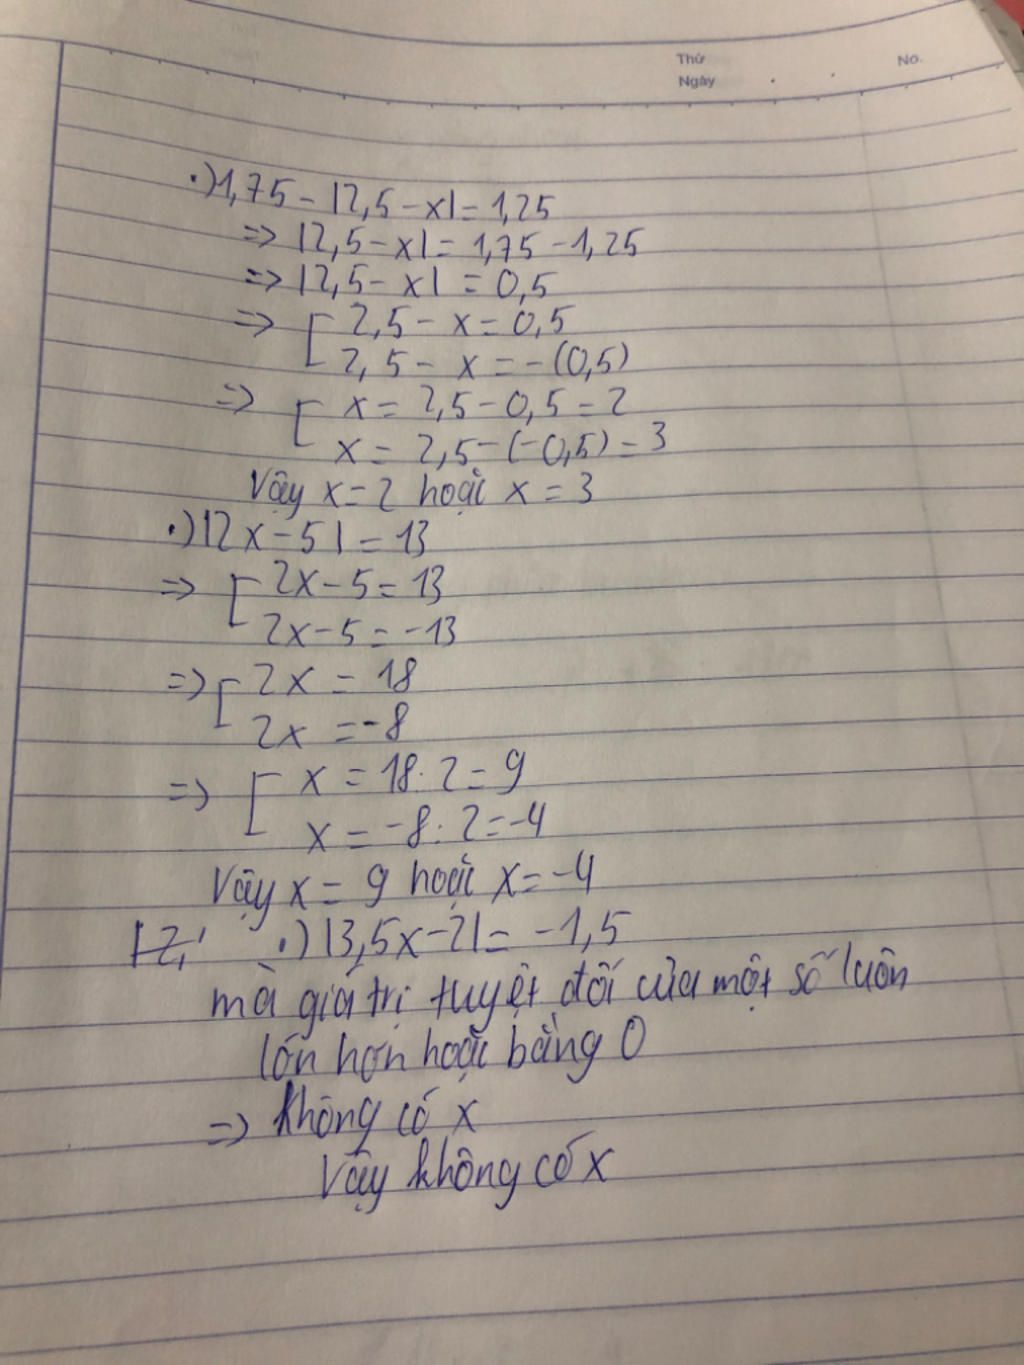 Thứ
No.
Ngày
.)1,75 - |2,5 - x| = 1,25
=> |2,5 - x| = 1,75 - 1,25
=> |2,5 - x| = 0,5
=> [ 2,5 - x = 0,5
2,5 - x = -(0,5)
=> [ x = 2,5 - 0,5 = 2
x = 2,5 - (-0,5) = 3
Vậy x = 2 hoặc x = 3
.)|2x - 5| = 13
=> [ 2x - 5 = 13
2x - 5 = -13
=> [ 2x = 18
2x = -8
=> [ x = 18: 2 = 9
x = -8: 2 = -4
Vậy x = 9 hoặc x = -4
.) |3,5x - 2| = -1,5
mà giá trị tuyệt đối của một số luôn
lớn hơn hoặc bằng 0
=> không có x
Vậy không có x